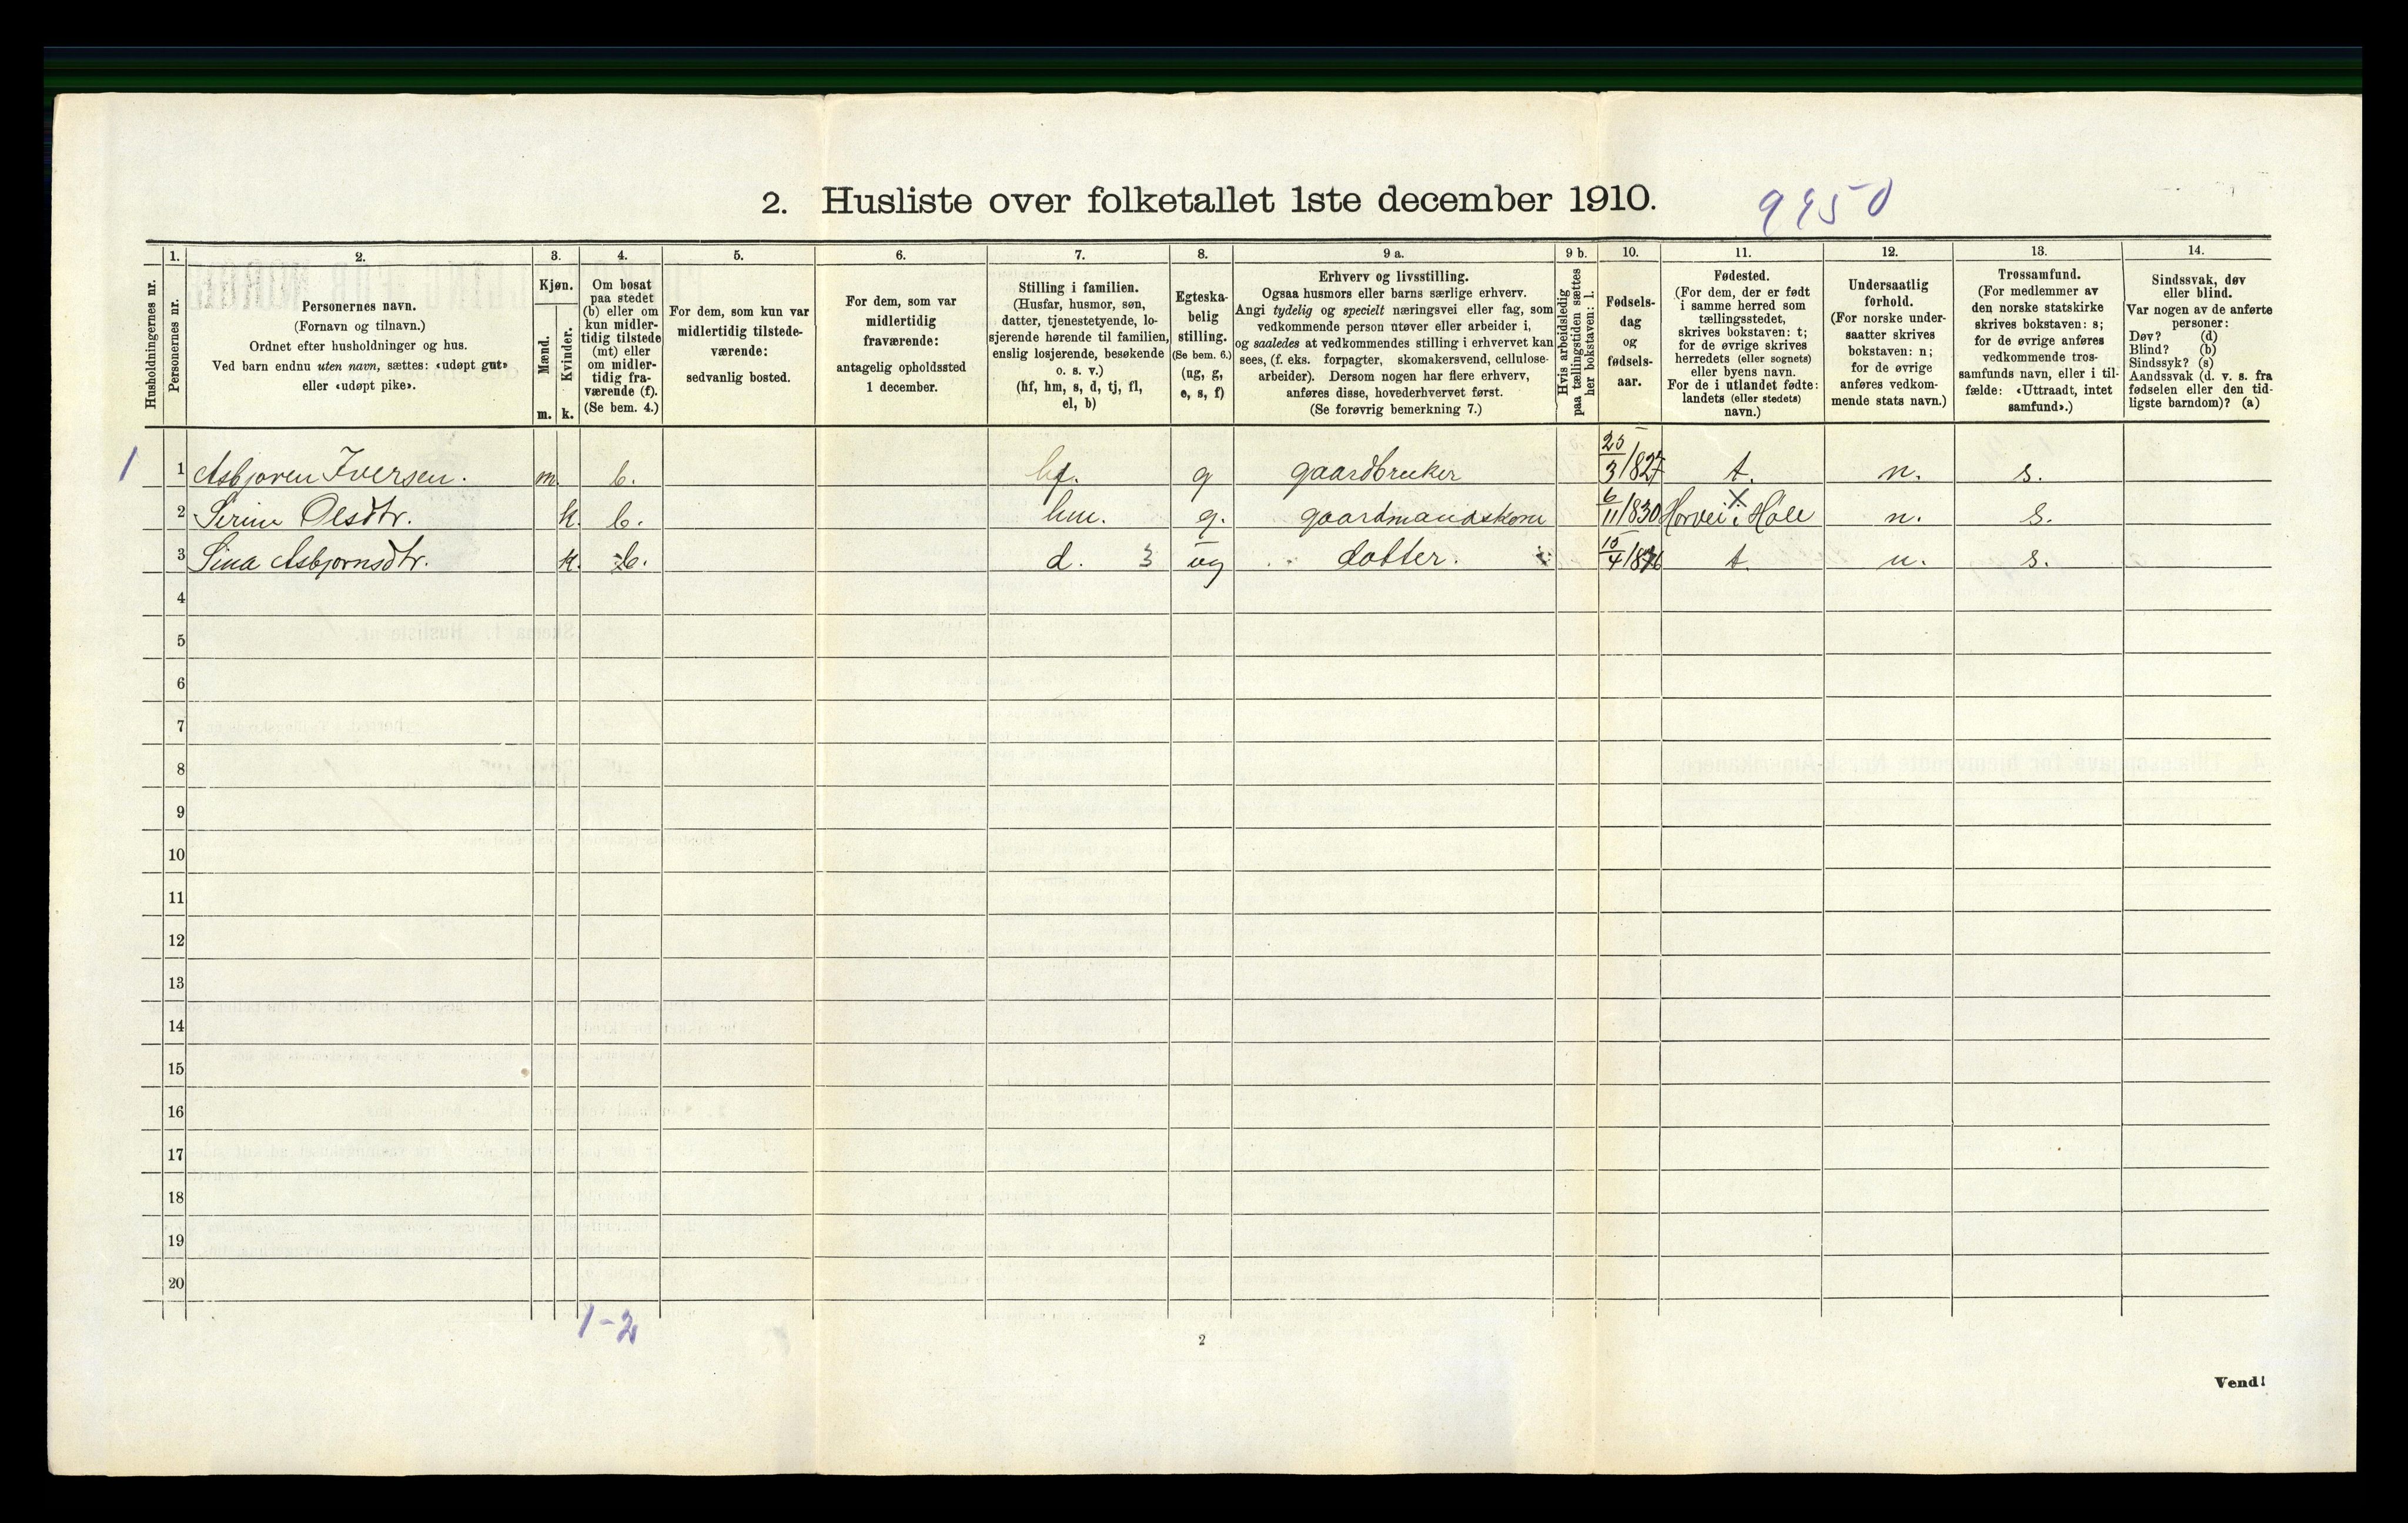 2. Husliste over folketallet 1ste december 1910.
Husholdningernes nr.
1.
Personernes nr.
2.
Personernes navn.
(Fornavn og tilnavn.)
Ordnet efter husholdninger og hus.
Ved barn endnu uten navn, sættes: «udøpt gut»
eller «udøpt pike».
3.
Kjøn.
Mænd.
Kvinder.
m. k.
4.
Om bosat
paa stedet
(b) eller om
kun midler-
tidig tilstede
(mt) eller
om midler-
tidig fra-
værende (f).
(Se bem. 4.)
5.
For dem, som kun var
midlertidig tilstede-
værende:
sedvanlig bosted.
6.
For dem, som var
midlertidig
fraværende:
antagelig opholdssted
1 december.
7.
Stilling i familien.
(Husfar, husmor, søn,
datter, tjenestetyende, lo-
sjerende hørende til familien,
enslig losjerende, besøkende
o. s. v.)
(hf, hm, s, d, tj, fl,
el, b)
8.
Egteska-
belig
stilling.
(Se bem. 6.)
(ug, g,
e, s, f)
9 a.
Erhverv og livsstilling.
Ogsaa husmors eller barns særlige erhverv.
Angi tydelig og specielt næringsvei eller fag, som
vedkommende person utøver eller arbeider i,
og saaledes at vedkommendes stilling i erhvervet kan
sees, (f. eks. forpagter, skomakersvend, cellulose-
arbeider). Dersom nogen har flere erhverv,
anføres disse, hovederhvervet først.
(Se forøvrig bemerkning 7.)
9 b.
Hvis arbeidsledig
paa tællingstiden sættes
her bokstaven: l.
10.
Fødsels-
dag
og
fødsels-
aar.
11.
Fødested.
(For dem, der er født
i samme herred som
tællingsstedet,
skrives bokstaven: t;
for de øvrige skrives
herredets (eller sognets)
eller byens navn.
For de i utlandet fødte:
landets (eller stedets)
navn.)
12.
Undersaatlig
forhold.
(For norske under-
saatter skrives
bokstaven: n;
for de øvrige
anføres vedkom-
mende stats navn.)
13.
Trossamfund.
(For medlemmer av
den norske statskirke
skrives bokstaven: s;
for de øvrige anføres
vedkommende tros-
samfunds navn, eller i til-
fælde: «Uttraadt, intet
samfund».)
14.
Sindssvak, døv
eller blind.
Var nogen av de anførte
personer:
Døv? (d)
Blind? (b)
Sindssyk? (s)
Aandssvak (d. v. s. fra
fødselen eller den tid-
ligste barndom)? (a)
1 1 Asbjoren Iversen. m. b. hf. g gaardbruker 25/3/827 t. n. s.
2 Serine Olsdtr. k. b. hm. g. gaardmandskone 6/11/830 i Hole n. s.
3 Sina Asbjornsdtr. k. b. d. 3 ug datter. 15/4/876 t. n. s.
4
5
6
7
8
9
10
11
12
13
14
15
16
17
18
19
20
1-2
2
Vend!